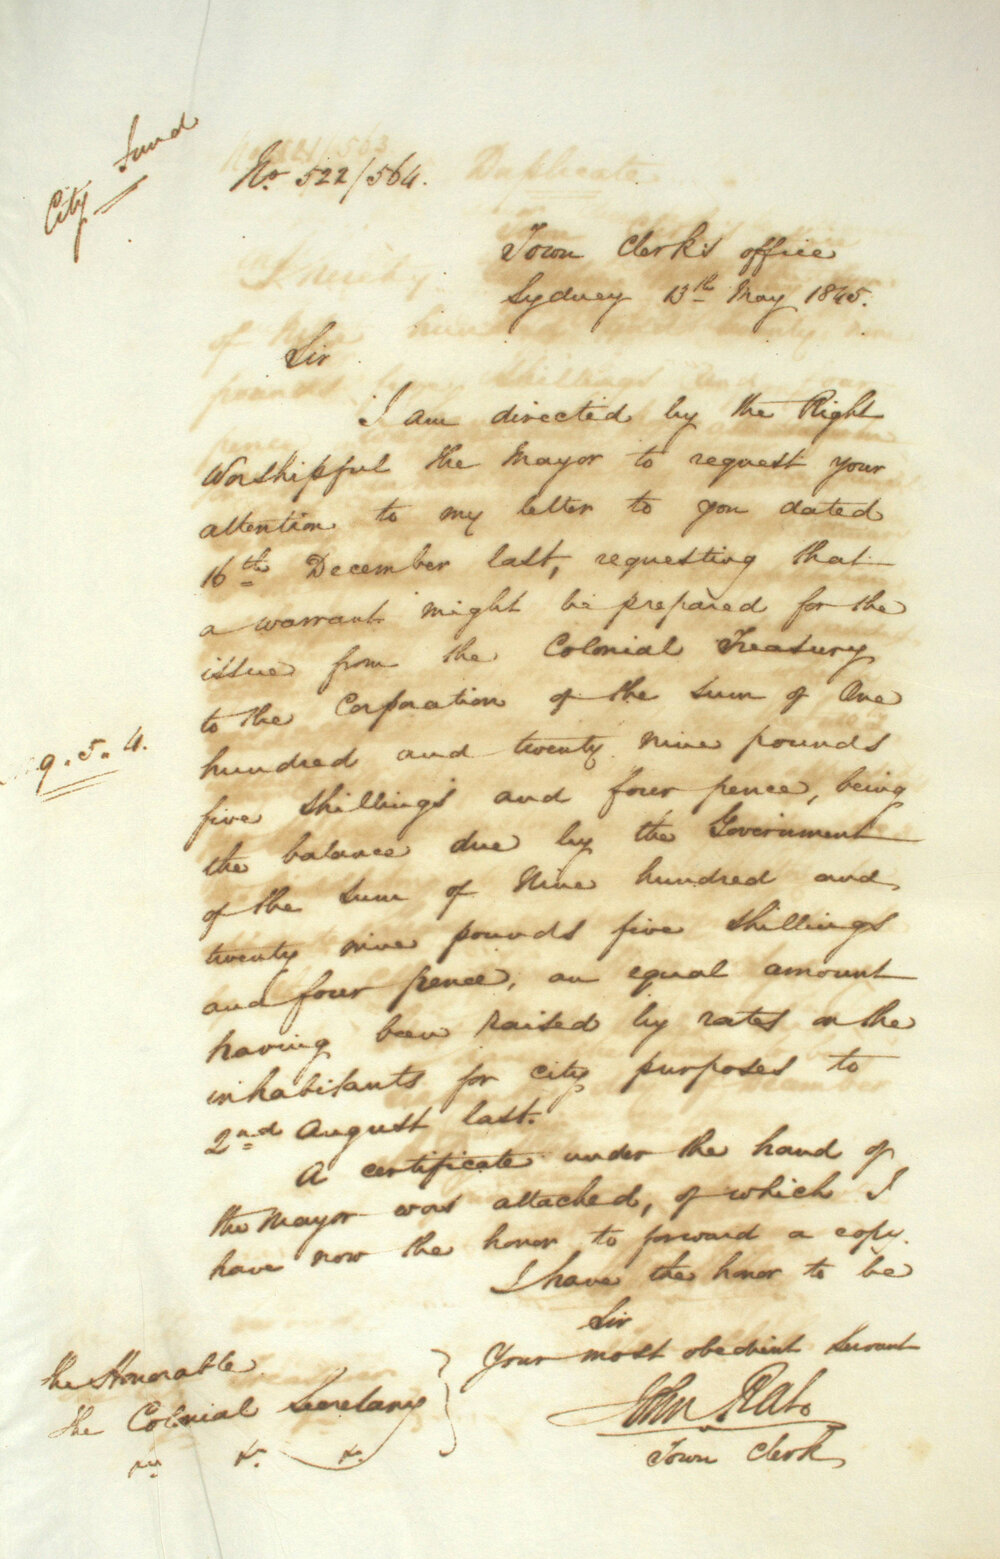 City Fund
No. 522/564.
Town Clerk's office
Sydney 13th May 1845.
Sir
I am directed by the Right
Worshipful the Mayor to request your
attention to my letter to you dated
16th December last, requesting that
a warrant might be prepared for the
issue from the Colonial Treasury
to the Corporation of the sum of One
hundred and twenty nine pounds
9. 5. 4.
five shillings and four pence, being
the balance due by the Government
of the sum of Nine hundred and
twenty nine pounds five shillings
and four pence, an equal amount
having been raised by rates on the
inhabitants for city purposes to
2nd August last.
A certificate under the hand of
the Mayor was attached, of which I
have now the honor to forward a copy.
I have the honor to be
Sir
Your most obedient Servant
John Rae
Town Clerk
The Honorable
the Colonial Secretary
&c. &c. &c.